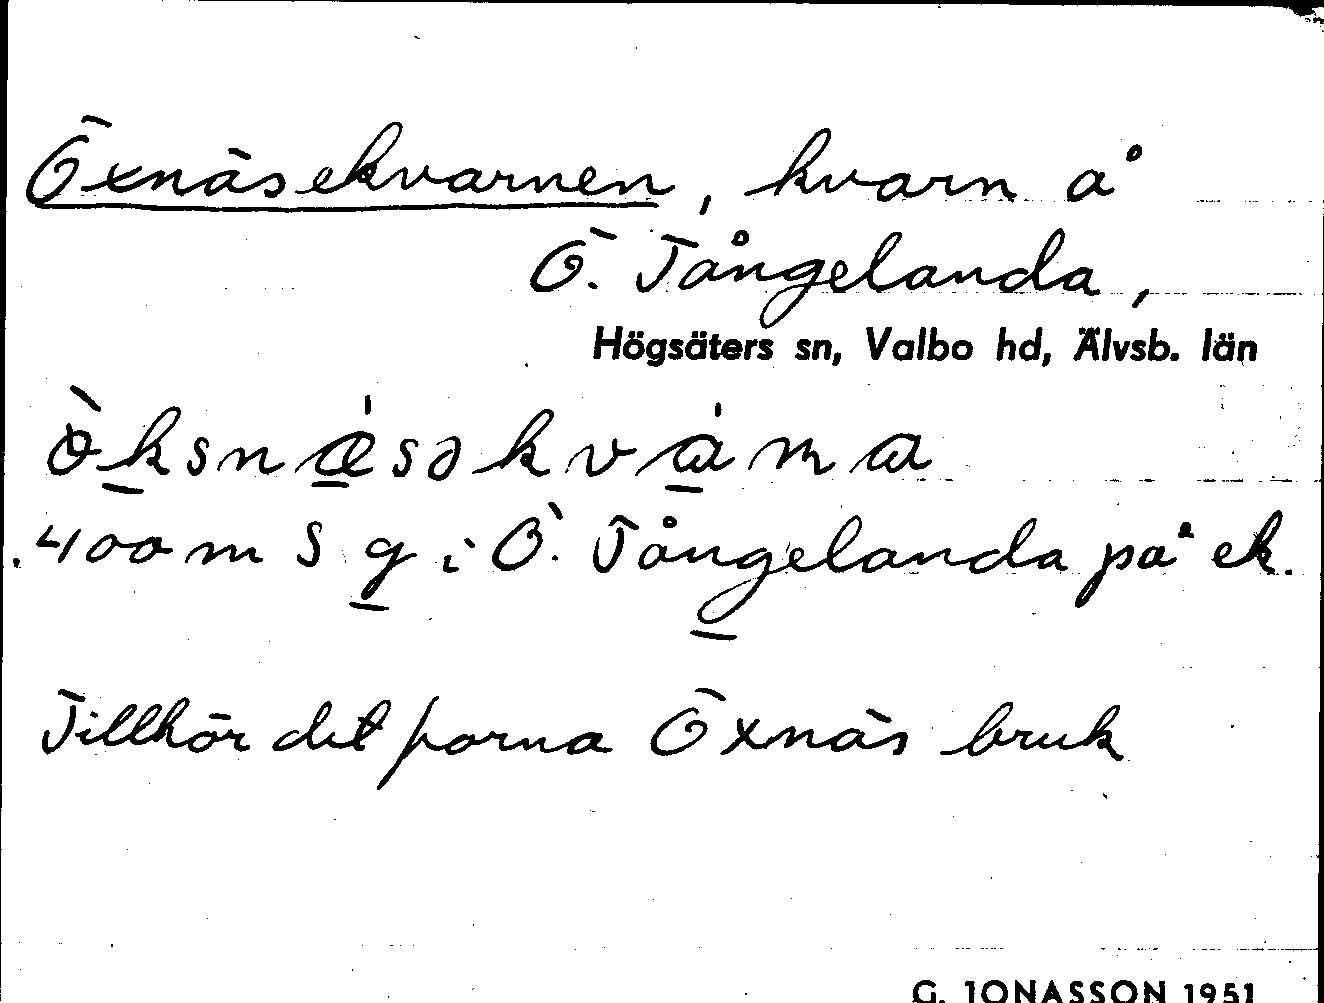 Öxnäsekvarnen, kvarn å
Ö. Tångelanda,
Högsäters sn, Valbo hd, Älvsb. län
400 m S g i Ö. Tångelanda på ek.
Tillhör det forna Öxnäs bruk
G. JONASSON 1951